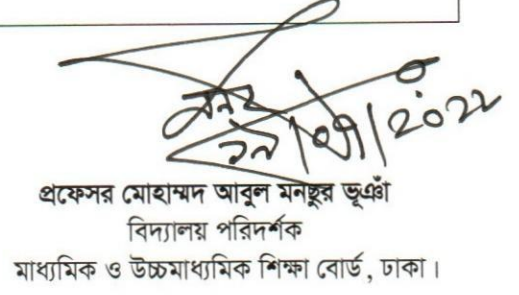 প্রফেসর মোহাম্মদ আবুল মনছুর ভূঞাঁ
বিদ্যালয় পরিদর্শক
মাধ্যমিক ও উচ্চমাধ্যমিক শিক্ষা বোর্ড, ঢাকা।